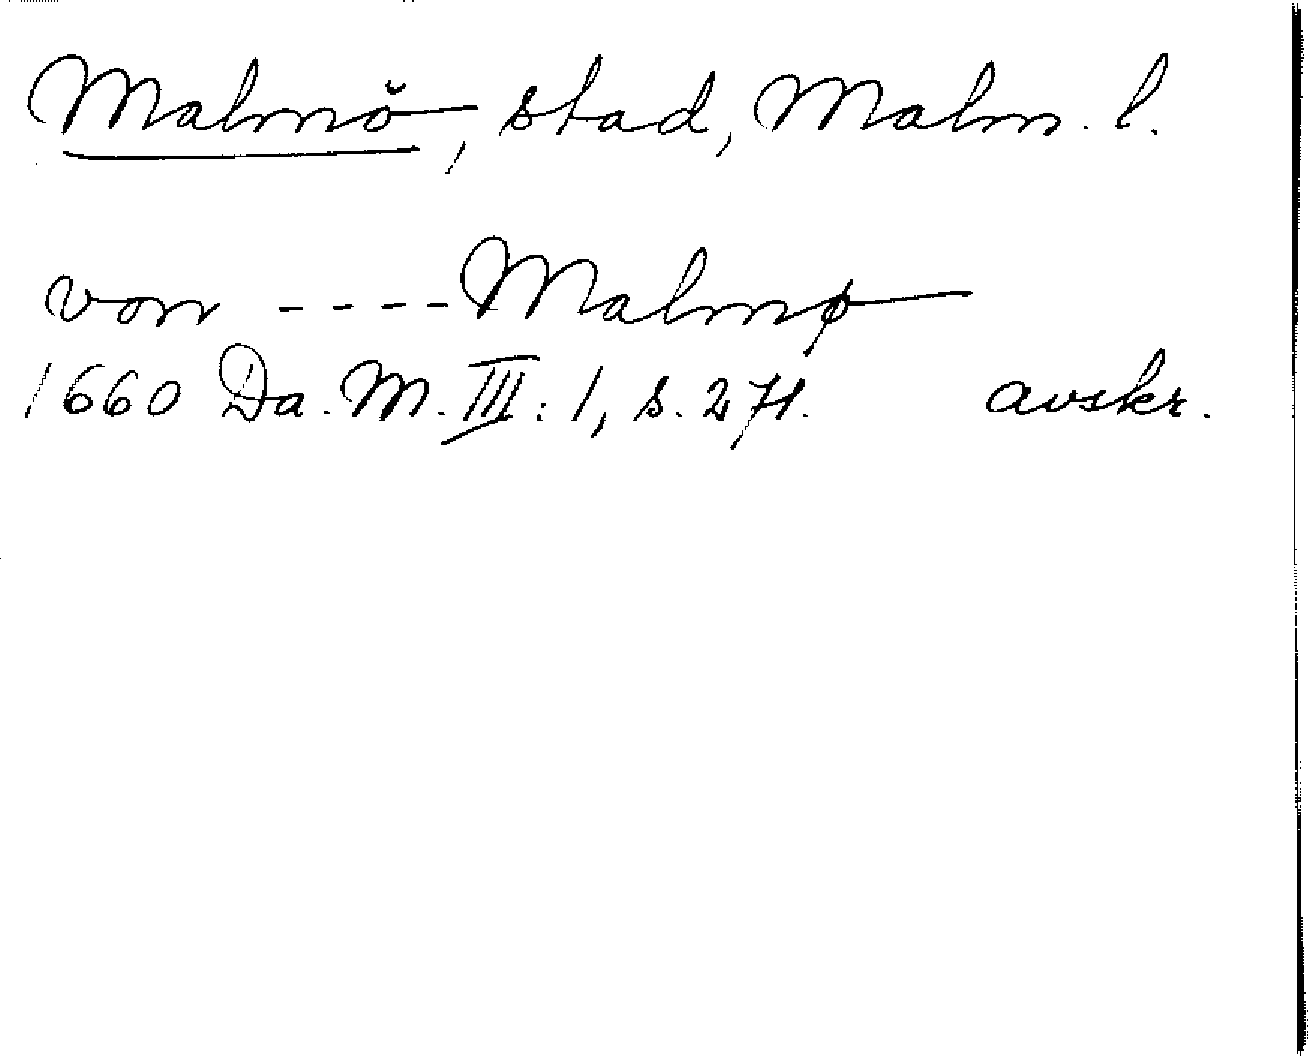 Malmö, stad, Malm. l.
von ---- Malmø
1660 Da. M. III: 1, s. 271. avskr.